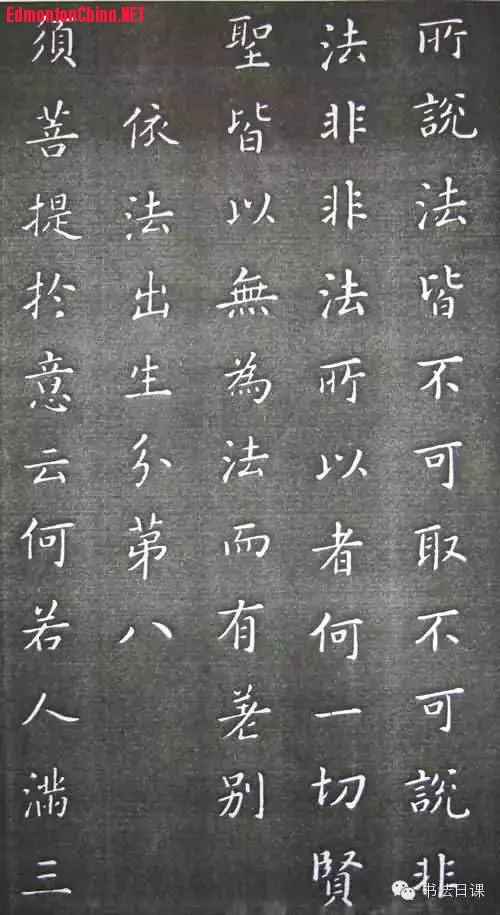 EdmontonChina.NET
所說法皆不可取不可說非
法非非法所以者何一切賢
聖皆以無為法而有差別
依法出生分第八
須菩提於意云何若人滿三
书法日课